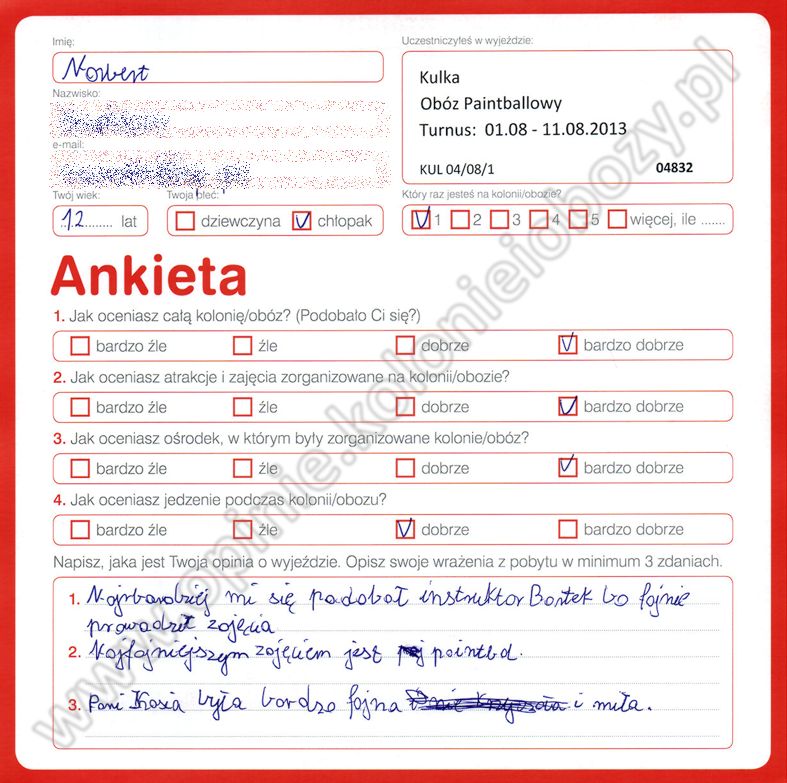 Imię:
Norbert
Nazwisko:
e-mail:
Twój wiek:
12 lat
Twoja płeć:
dziewczyna chłopak
Uczestniczyłeś w wyjeździe:
Kulka
Obóz Paintballowy
Turnus: 01.08 - 11.08.2013
KUL 04/08/1 04832
Który raz jesteś na kolonii/obozie?
1 2 3 4 5 więcej, ile .......
Ankieta
1. Jak oceniasz całą kolonię/obóz? (Podobało Ci się?)
bardzo źle źle dobrze bardzo dobrze
2. Jak oceniasz atrakcje i zajęcia zorganizowane na kolonii/obozie?
bardzo źle źle dobrze bardzo dobrze
3. Jak oceniasz ośrodek, w którym były zorganizowane kolonie/obóz?
bardzo źle źle dobrze bardzo dobrze
4. Jak oceniasz jedzenie podczas kolonii/obozu?
bardzo źle źle dobrze bardzo dobrze
Napisz, jaka jest Twoja opinia o wyjeździe. Opisz swoje wrażenia z pobytu w minimum 3 zdaniach.
1. Najrbardziej mi się podobał instruktor Bartek bo fajnie
prowadził zajęcia
2. Najfajniejszym zajęciem jest
3. Pani Kasia była bardzo fajna i miła.
www.opinie.kolonieiobozy.pl